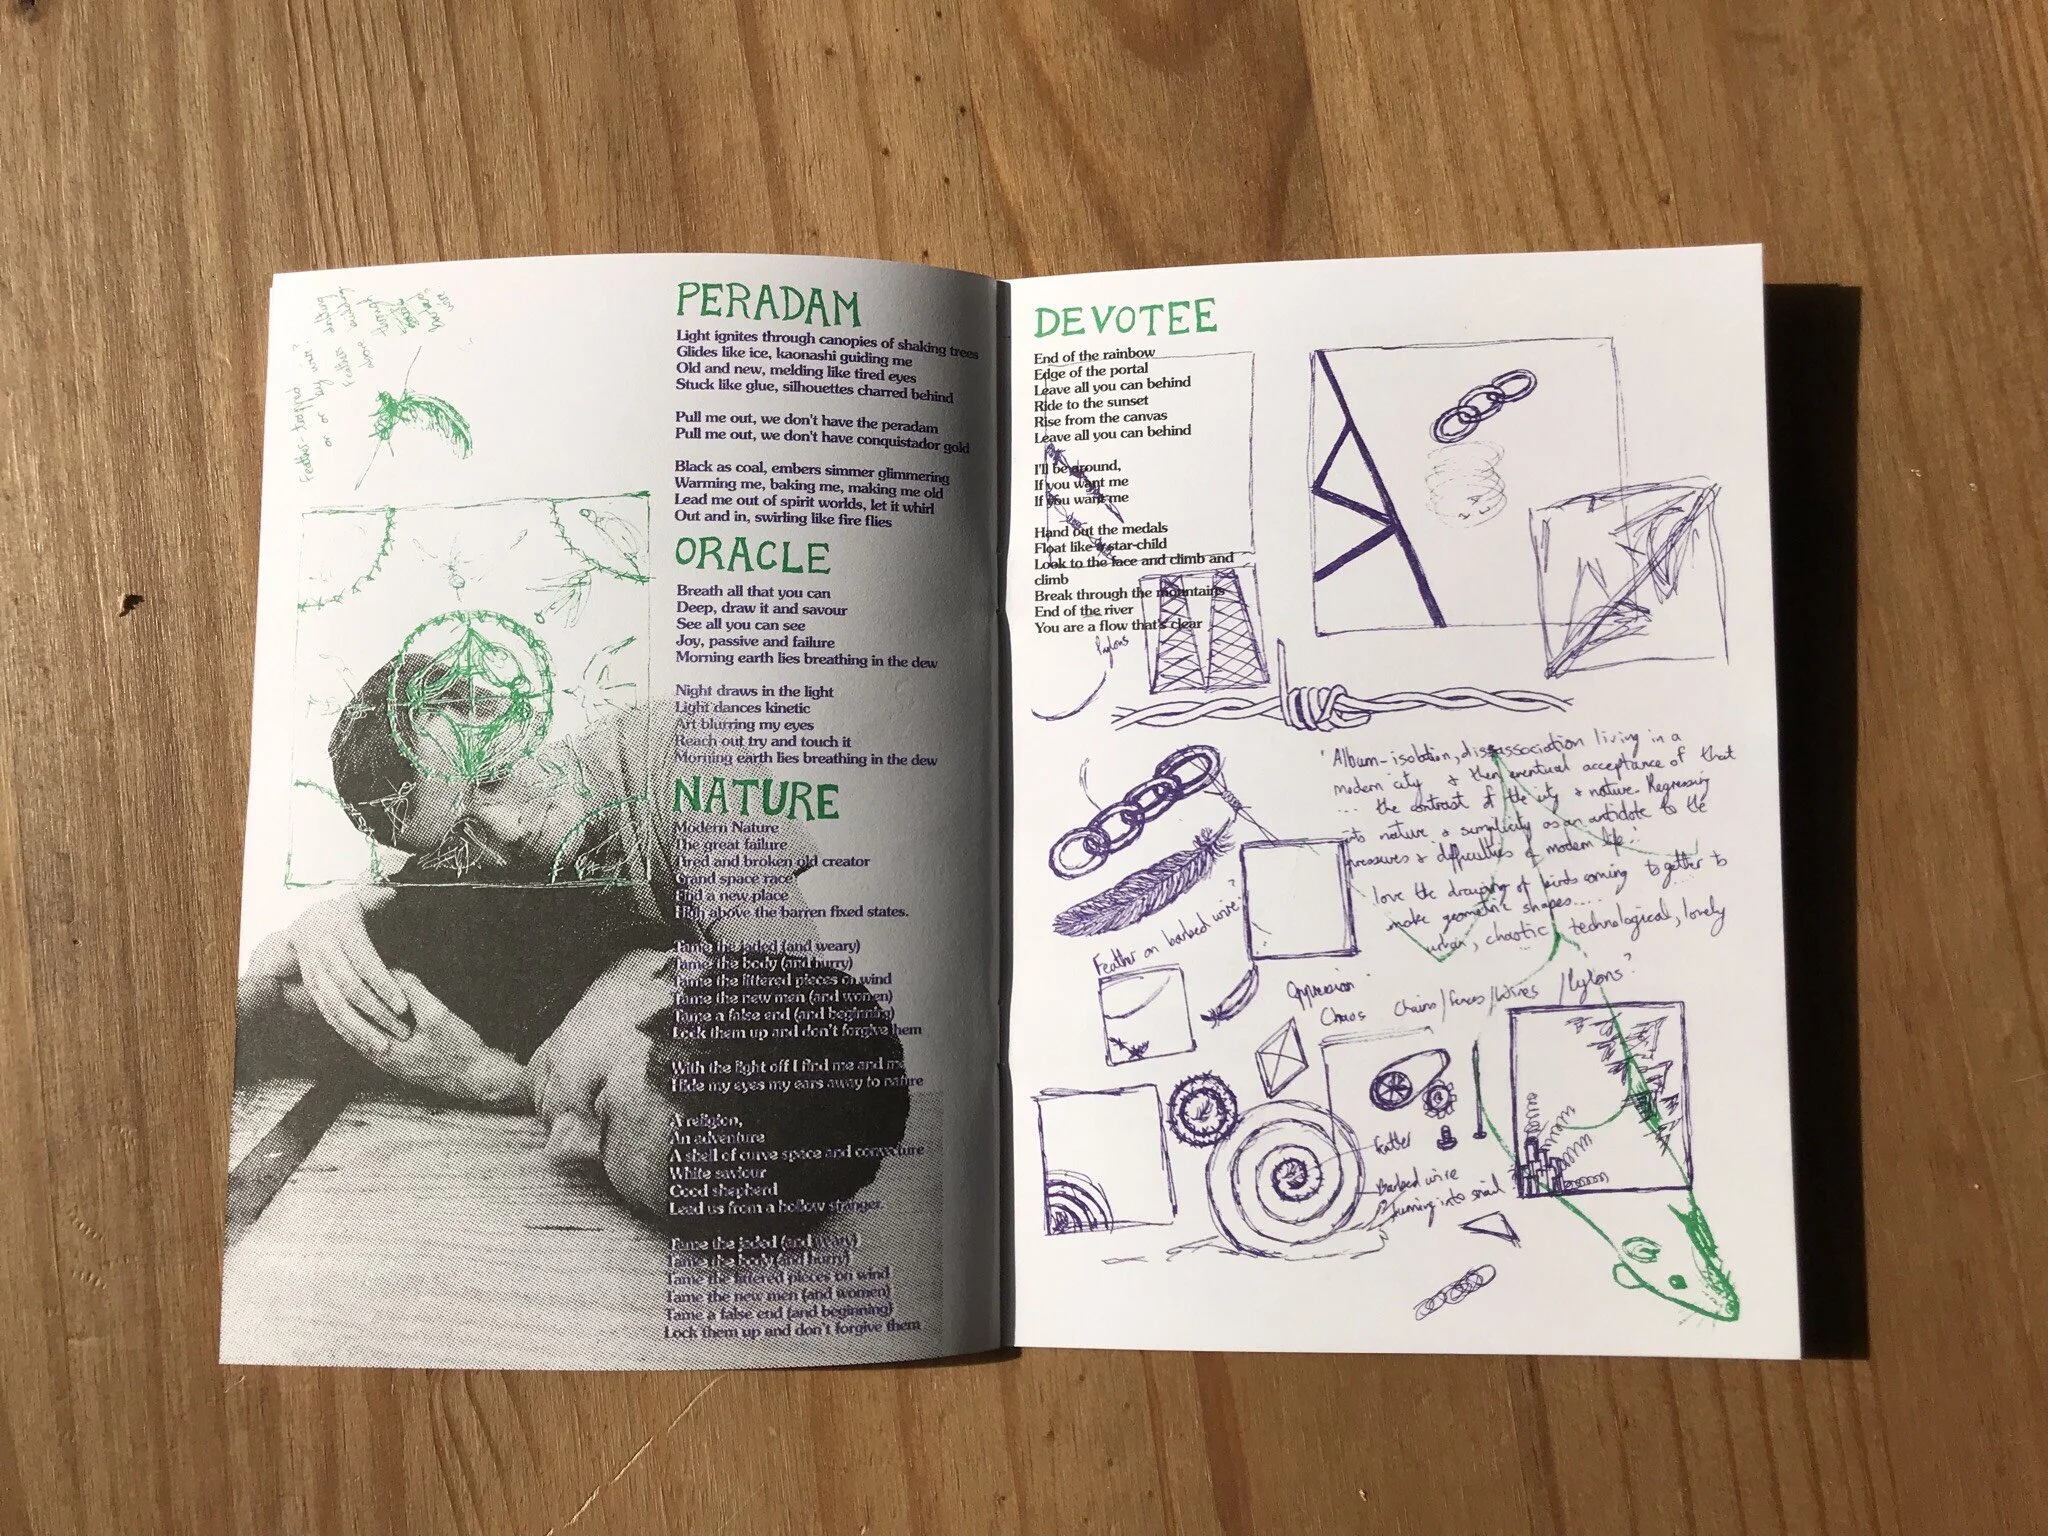 PERADAM
Light ignites through canopies of shaking trees
Glides like ice, kaonashi guiding me
Old and new, melding like tired eyes
Stuck like glue, silhouettes charred behind
Pull me out, we don't have the peradam
Pull me out, we don't have conquistador gold
Black as coal, embers simmer glimmering
Warming me, baking me, making me old
Lead me out of spirit worlds, let it whirl
Out and in, swirling like fire flies
ORACLE
Breath all that you can
Deep, draw it and savour
See all you can see
Joy, passive and failure
Morning earth lies breathing in the dew
Night draws in the light
Light dances kinetic
Art blurring my eyes
Reach out try and touch it
Morning earth lies breathing in the dew
NATURE
Modern Nature
The great failure
Tired and broken old creator
Grand space race
Find a new place
High above the barren fixed states.
Tame the jaded (and weary)
Tame the body (and hurry)
Tame the littered pieces on wind
Tame the new men (and women)
Tame a false end (and beginning)
Lock them up and don't forgive them
With the light off I find me and me
Hide my eyes my ears away to nature
A religion,
An adventure
A shell of curve space and
White saviour
Good shepherd
Lead us from a hollow stranger.
Tame the jaded (and weary)
Tame the body (and hurry)
Tame the littered pieces on wind
Tame the new men (and women)
Tame a false end (and beginning)
Lock them up and don't forgive them
Feather-trapped
or on by wire?
DEVOTEE
End of the rainbow
Edge of the portal
Leave all you can behind
Ride to the sunset
Rise from the canvas
Leave all you can behind
I'll be around,
If you want me
If you want me
Hand out the medals
Float like a star-child
Look to the face and climb and
climb
Break through the mountains
End of the river
You are a flow that's clear
Pylons
'Album-isolation, disassociation living in a
modern city & then eventual acceptance of that
.... the contrast of the city & nature. Regressing
into nature & simplicity as an antidote to the
pressures & difficulties of modern life'.
love the drawing of birds coming together to
make geometric shapes.....
urban, chaotic, technological, lovely
Feather on barbed wire?
Oppression
Chaos
Chains/fences/wires /Pylons?
Feather
Barbed wire
turning into snail